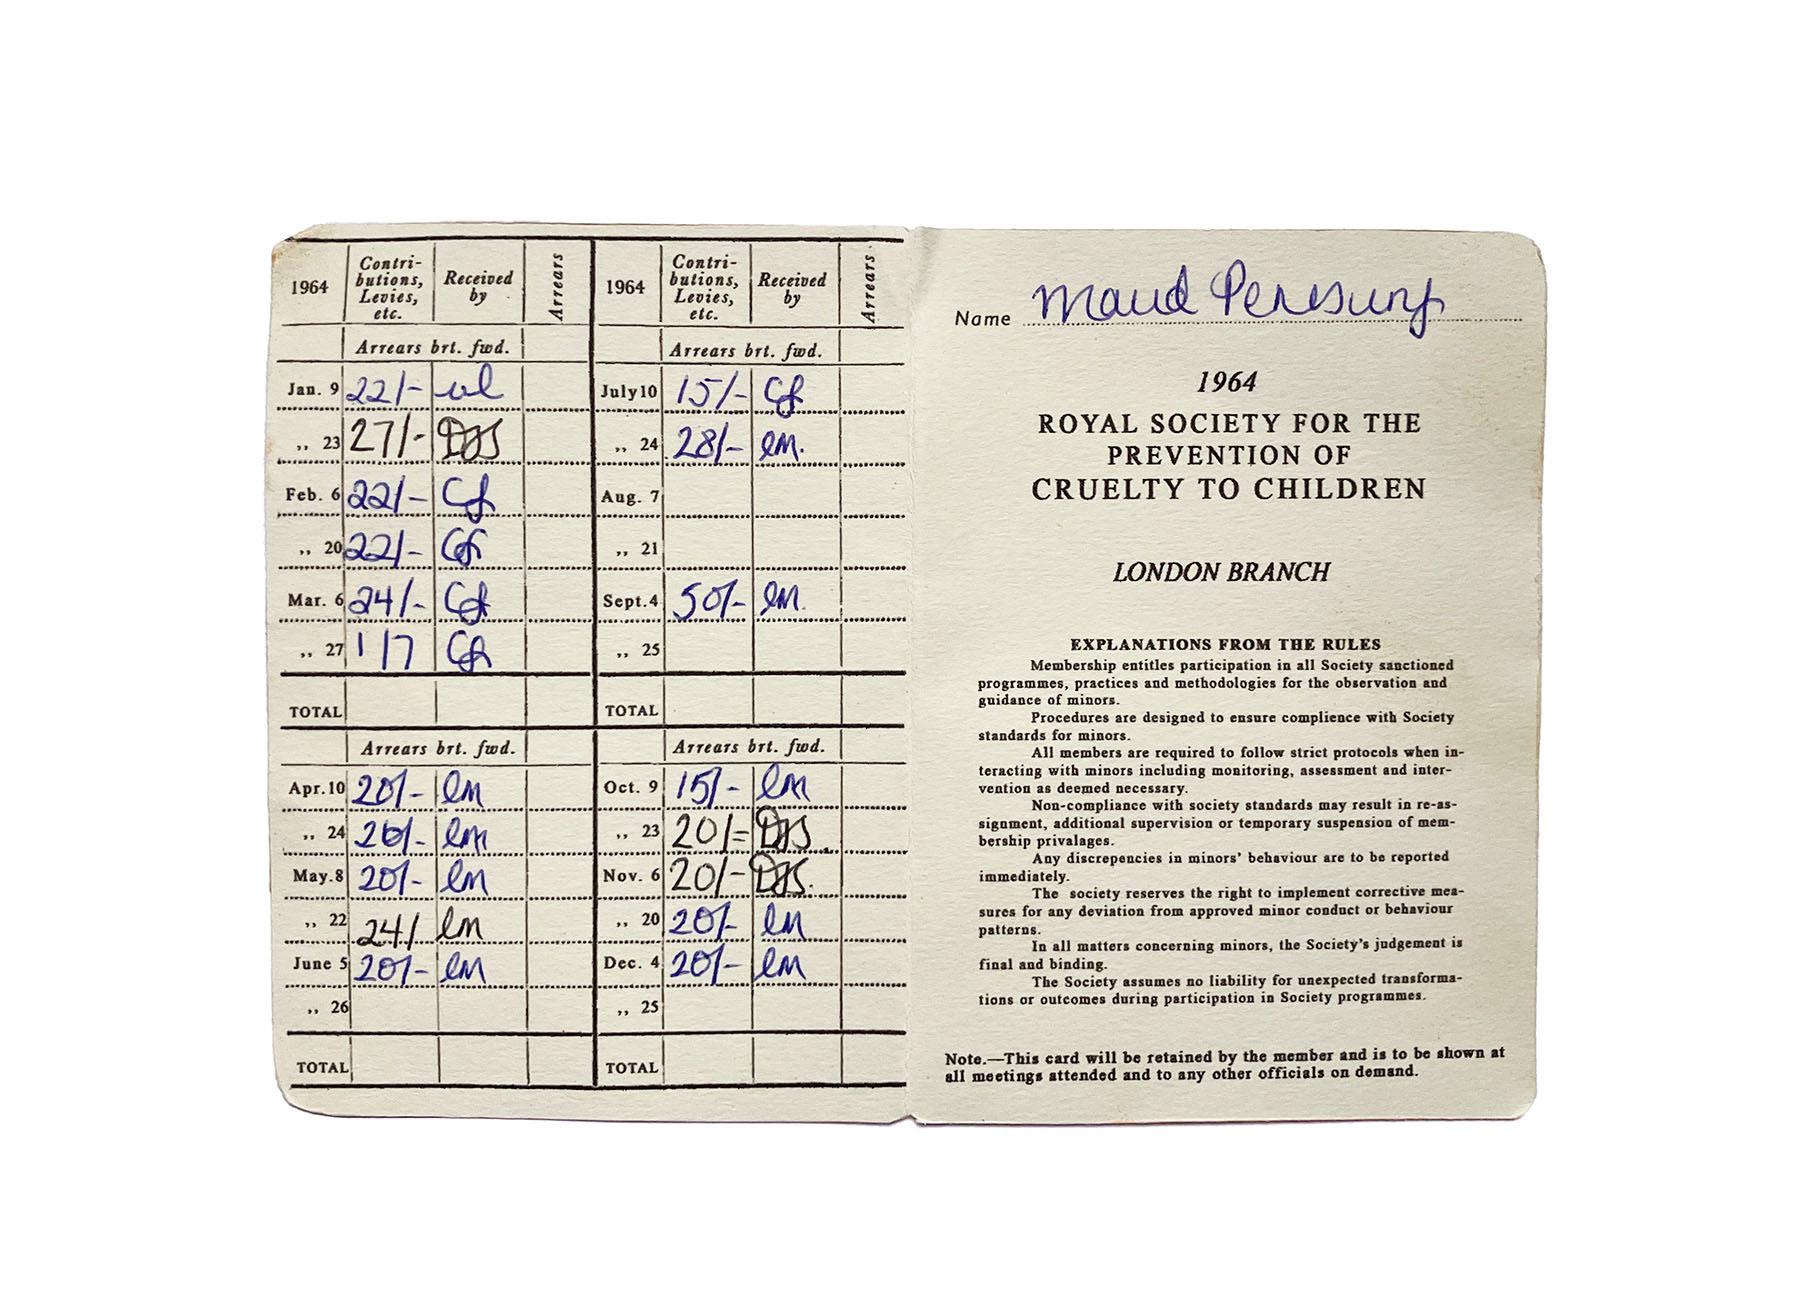 1964 Contri- butions, Levies, etc. Received by Arrears
Arrears brt. fwd.
Jan. 9 22/-
,, 23 27/- DJS
Feb. 6 22/- Cf
,, 20 22/- Cf
Mar. 6 24/- Cf
,, 27 1/7 Cf
TOTAL
Arrears brt. fwd.
Apr. 10 20/- lm
,, 24 20/- lm
May. 8 20/- lm
,, 22 24/ lm
June 5 20/- lm
,, 26
TOTAL
1964 Contri- butions, Levies, etc. Received by Arrears
Arrears brt. fwd.
July 10 15/- Cf
,, 24 28/- lm.
Aug. 7
,, 21
Sept. 4 50/- lm.
,, 25
TOTAL
Arrears brt. fwd.
Oct. 9 15/- lm
,, 23 20/= DJS.
Nov. 6 20/- DJS.
,, 20 20/- lm
Dec. 4 20/- lm
,, 25
TOTAL
Name Maud
1964
ROYAL SOCIETY FOR THE
PREVENTION OF
CRUELTY TO CHILDREN
LONDON BRANCH
EXPLANATIONS FROM THE RULES
Membership entitles participation in all Society sanctioned
programmes, practices and methodologies for the observation and
guidance of minors.
Procedures are designed to ensure complience with Society
standards for minors.
All members are required to follow strict protocols when in-
teracting with minors including monitoring, assessment and inter-
vention as deemed necessary.
Non-compliance with society standards may result in re-as-
signment, additional supervision or temporary suspension of mem-
bership privalages.
Any discrepencies in minors' behaviour are to be reported
immediately.
The society reserves the right to implement corrective mea-
sures for any deviation from approved minor conduct or behaviour
patterns.
In all matters concerning minors, the Society's judgement is
final and binding.
The Society assumes no liability for unexpected transforma-
tions or outcomes during participation in Society programmes.
Note.—This card will be retained by the member and is to be shown at
all meetings attended and to any other officials on demand.